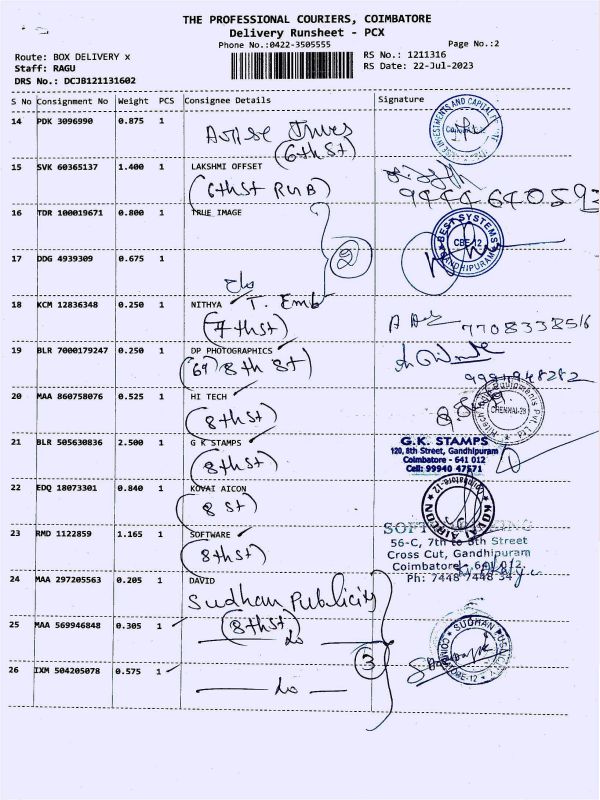 THE PROFESSIONAL COURIERS, COIMBATORE
Delivery Runsheet - PCX
Phone No.:0422-3505555
Page No.:2
Route: BOX DELIVERY x
Staff: RAGU
DRS No.: DCJB121131602
RS No.: 1211316
RS Date: 22-Jul-2023
S No Consignment No Weight PCS Consignee Details Signature
14 PDK 3096990 0.875 1
(6thSt)
15 SVK 60365137 1.400 1 LAKSHMI OFFSET
(6thSt RUB)
9444640593
16 TDR 100019671 0.800 1 TRUE IMAGE
BEST SYSTEMS
CBE-12
GANDHIPURAM
2
17 DDG 4939309 0.675 1
18 KCM 12836348 0.250 1 NITHYA
T. Emb
(7thSt)
7708338516
19 BLR 7000179247 0.250 1 DP PHOTOGRAPHICS
(69) 8th St)
20 MAA 860758076 0.525 1 HI TECH
(8thSt)
CHENNAI-28
21 BLR 505630836 2.500 1 G K STAMPS
(8thSt)
G.K. STAMPS
120, 8th Street, Gandhipuram
Coimbatore - 641 012
Cell: 99940 47571
22 EDQ 18073301 0.840 1 KOVAI AICON
(8 St)
KOVAI AIRCON
Coimbatore-12
23 RMD 1122859 1.165 1 SOFTWARE
(8thSt)
56-C, 7th to 8th Street
Cross Cut, Gandhipuram
Coimbatore - 641 012.
Ph: 7448 7448 34
24 MAA 297205563 0.205 1 DAVID
Sudhan Publicity
(8thSt)
25 MAA 569946848 0.305 1
do
3
SUDHAN PUBLICITY
COIMBATORE-12
26 IXM 504205078 0.575 1
do